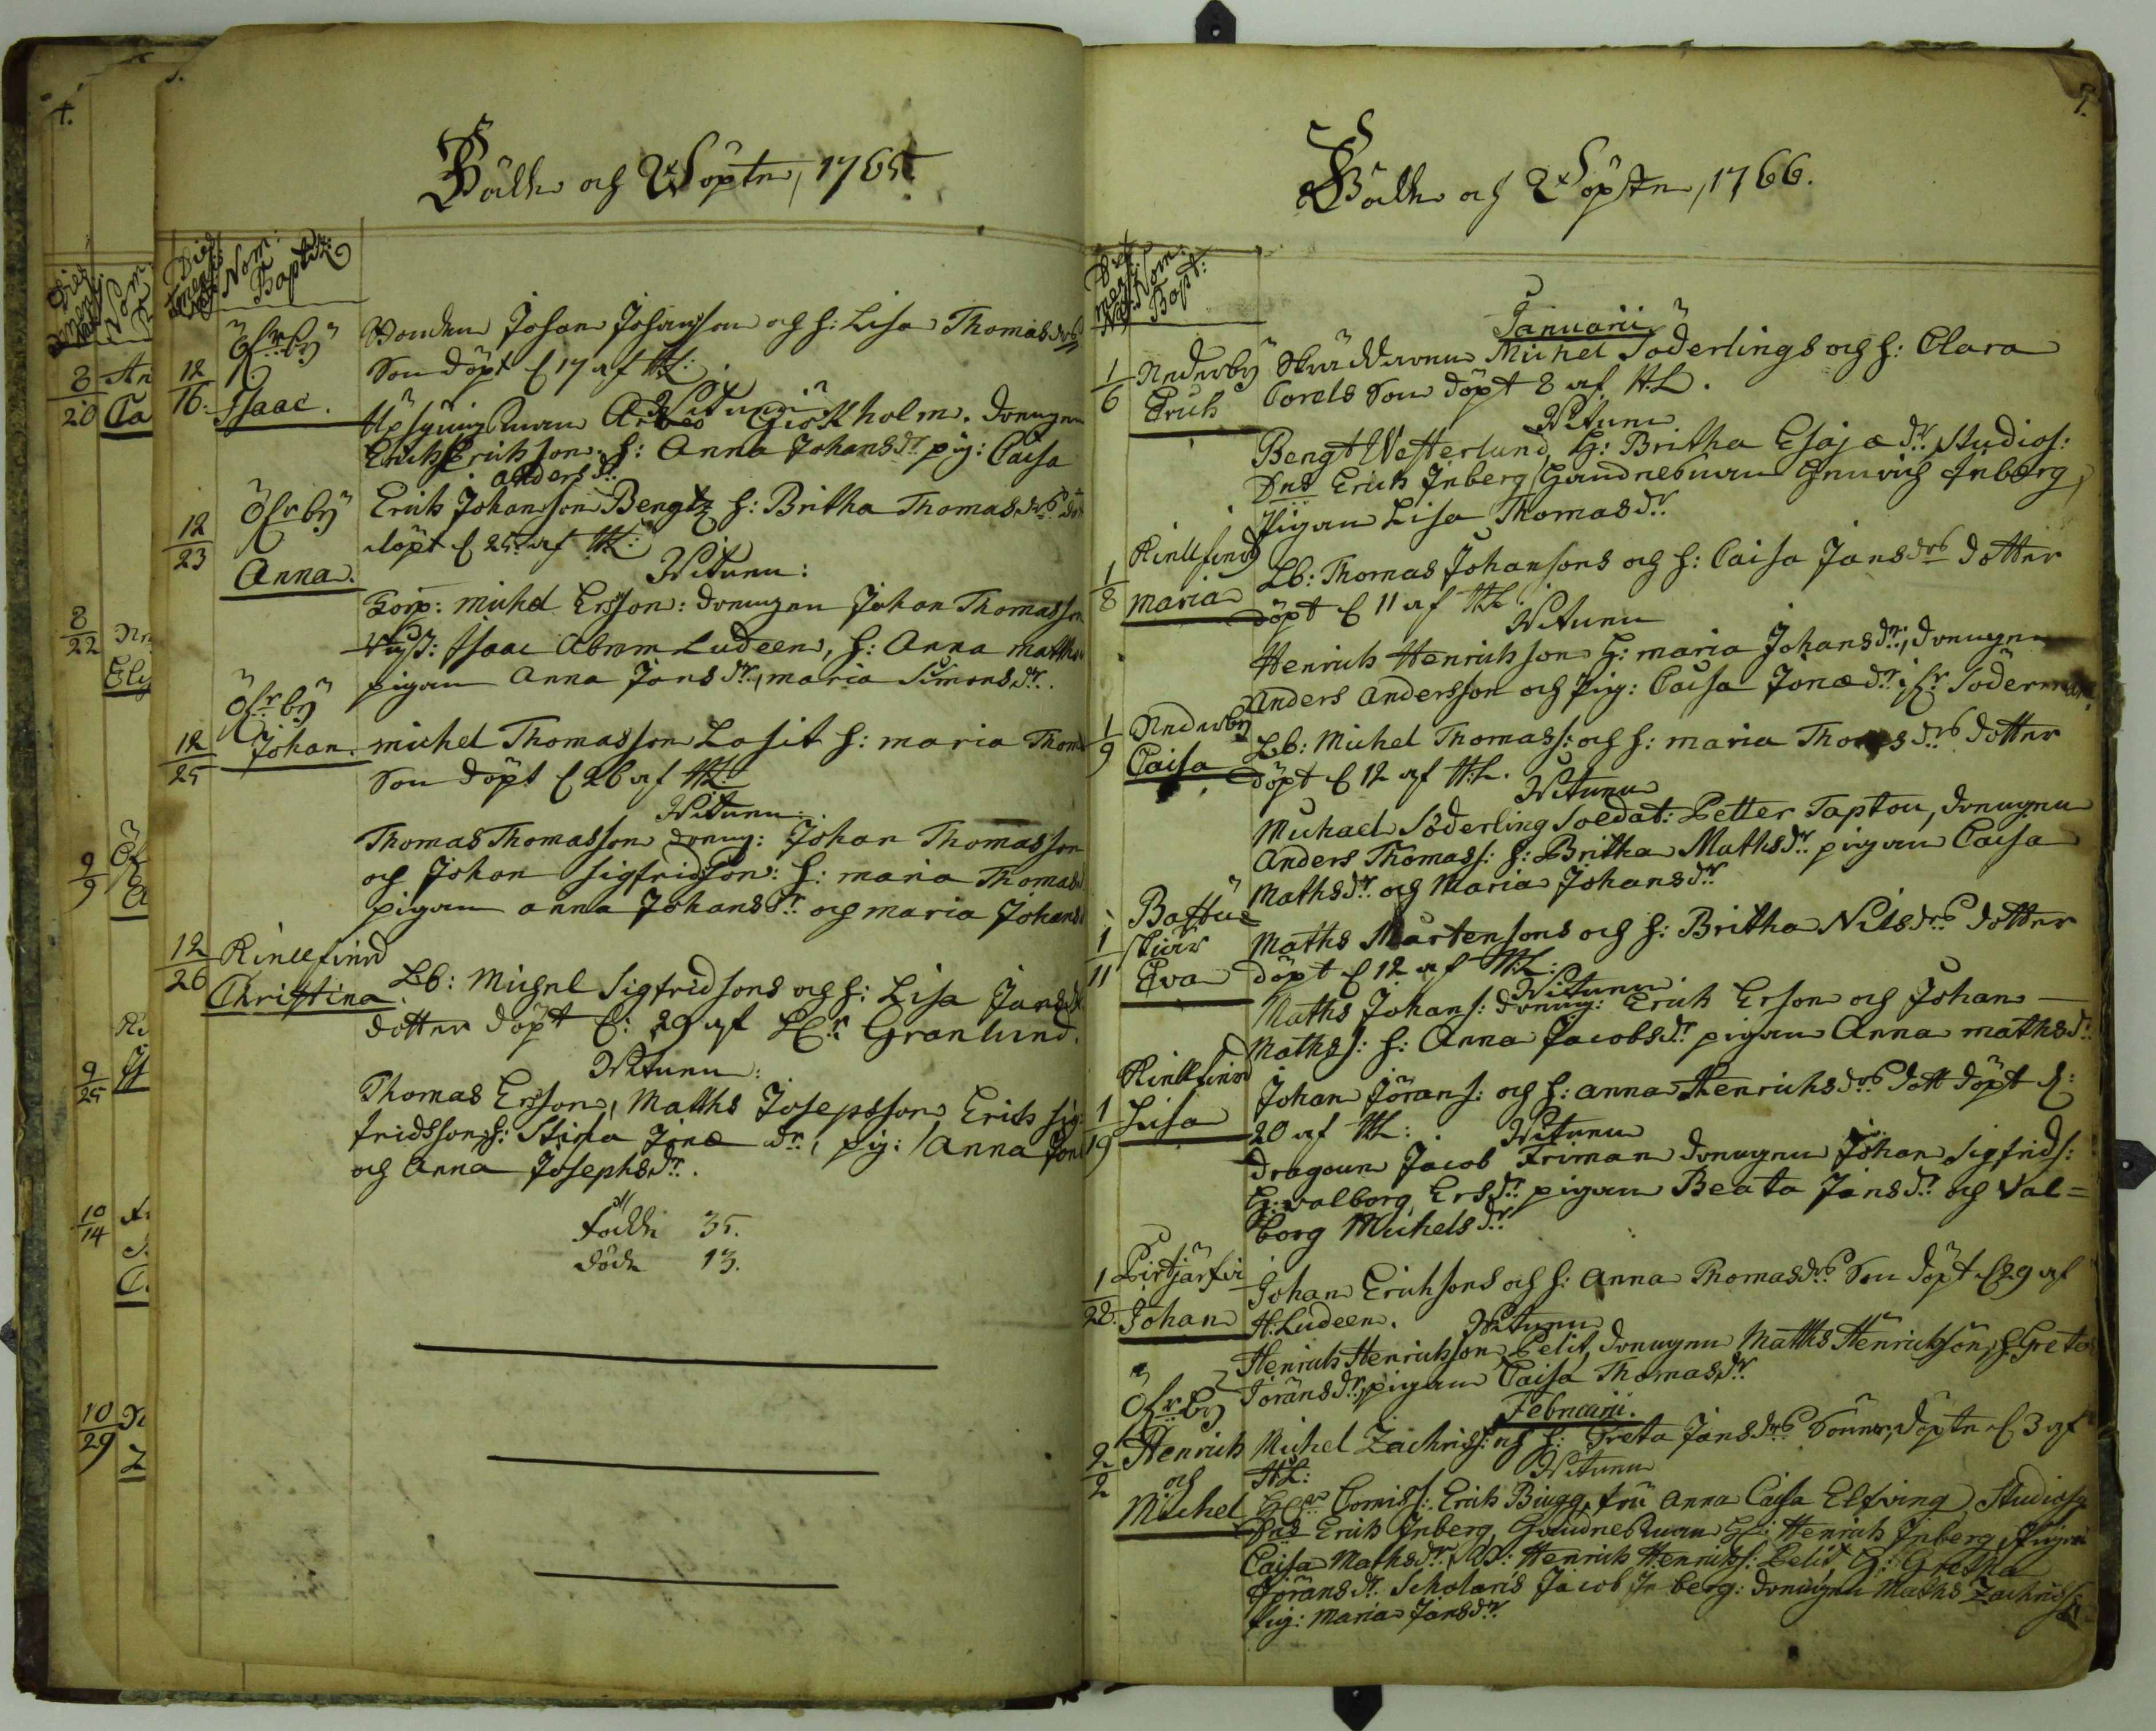 Födde och Döpte, 1765.
Dies
mensis
Nat:
Nom:
Baptiz:
12
16.
Öfrby
Isaac.
Bonden Johan Johansson och h: Lisa Thomasdrs
Son döpt d 17 af HL:
Witnen
Upsyningsman Gislholm. drengen
Erich Erichson. h: Anna Johansdr pig: Caisa
andersdr.
12
23
Öfrby
Anna.
Erich Johansson Bengtz h: Britha Thomasdrs
döpt d 25 af HL:
Witnen:
Corp: michel Ersson: drengen Johan Thomasson
Isaac Abram Ludeen, h: Anna maths
pigan Anna Jansdr, maria Simonsdr.
12
25
Öfrby
Johan.
michel Thomasson Lasit h: maria Thom
Son döpt d 26 af HL:
Witnen.
Thomas Thomasson dreng: Johan Thomasson
och Johan Sigfridson: h: maria Thomasd
pigan anna Johansdr. och maria Johans
12
26
Kinttfierd
Christina.
Lb: Michel Sigfridsons och h: Lisa Jansdr
dotter döpt d: 29 af Hr Granlund.
Witnen:
Thomas Ersson, Maths Josepsson, Erich Sig:
fridsson, h: Stina Jonæ dr, pig: Anna Jon
och Anna Josephsdr.
födde 35.
döde 13.
Födde och Döpte, 1766.
9.
Dies
mensis
Nat:
Nom:
Bapt:
Januarii
1
6
Nederby
Erich
Skräddaren Michel Söderlings och h: Clara
Carels Son döpt 8 af H:L.
Witnen
Bengt Wetterlund, H: Britha Esajædr, Studios:
Dns Erich Inberg, Handnesman Henrich Inberg,
Pigan Lisa Thomasdr.
1
8
Kinttfierd
maria
Lb: Thomas Johansons och h: Caisa Jansdrs dotter
döpt d 11 af HL
Witnen
Henrich Henrichson h: maria Johansdr, drengen
Anders Andersson och Pig: Caisa Jonædr: Södermar
1
9
Nederby
Caisa
Lb: Michel Thomass: och h: maria Thomsdrs dotter
döpt d 12 af H:L.
Witnen
Michael Söderling Soldat: Petter Tapton, drengen
Anders Thomass: h: Britha Mathsdr. pigan Caisa
Mathsdr. och Maria Johansdr
1
11
Eva
Maths Mårtensons och h: Britha Nilsdrs dotter
döpt d 12 af H:L:
Witnen
Maths Johans: dreng: Erich Erson och Johan
Mathss: h: Anna Jacobsdr pigan Anna mathsdr.
1
19
Kinttfierd
Lisa
Johan Jörans: och h: anna Henrichsdrs dott döpt d:
20 af HL:
Witnen
dragoun Jacob Friman drengen Johan Sigfrids:
H: valborg Ersdr. pigan Beata Jansdr och Val=
borg Michelsdr
1
28.
Pirtjärfvi
Johan
Johan Erichsons och h: Anna Thomasdrs Son döpt d 29 af
H: Ludeen.
Witnen
Henrich Henrichson Pelit, drengen Maths Henrichson, h: Greta
Joransdr, pigan Caisa Thomasdr.
Februarii.
2
2
Öfrby
Henrich
och
Michel
Michel Zachriss: och h: Greta Jansdrs Sönner, döpte d 3 af
HL:
Witnen
Hr Comiss: Erich Biugg, fru Anna Caisa Elfving, Studios:
Dns Erich Inberg, Handnesman H: Henrich Inberg, Pigan
Caisa Mathsdr, Lb: Henrich Henrichs: Pelit, H: Gretha
Joransdr. Scholaris Jacob Inberg: drengen Maths Zachriss:
Pig: Maria Jansdr.
4.
Dies
mensis
8
20
An
Ca
8
22
9
9
9
25
10
14
10
29